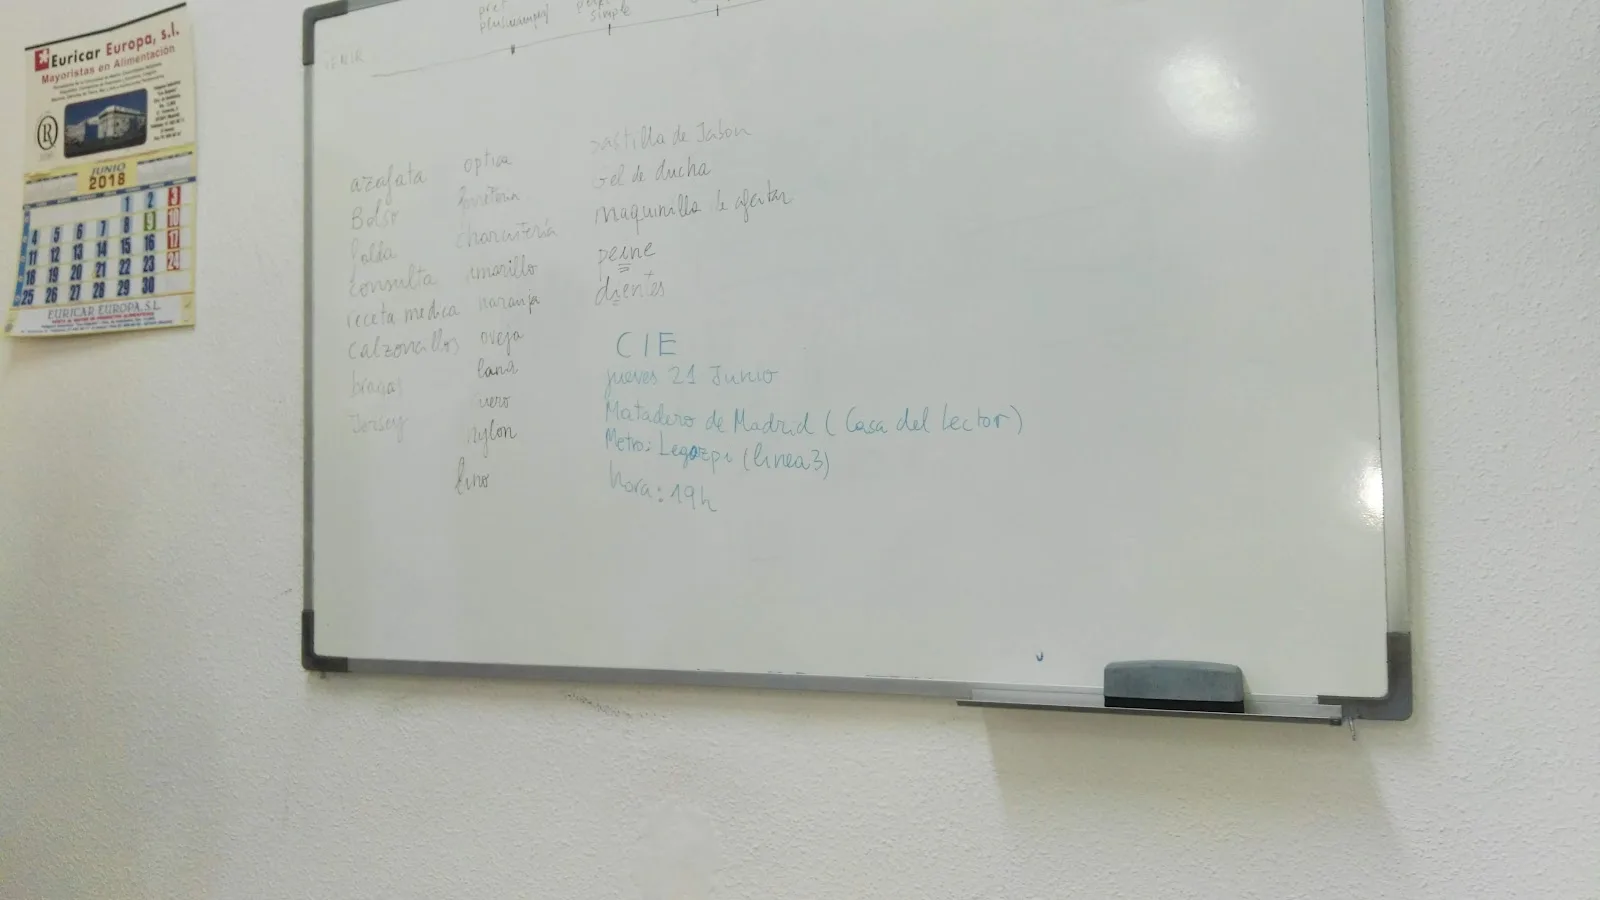 Euricar Europa, s.l.
Mayoristas en Alimentación
R
JUNIO
2018
1 2 3
4 5 6 7 8 9 10
11 12 13 14 15 16 17
18 19 20 21 22 23 24
25 26 27 28 29 30
EURICAR EUROPA, S.L.
pret
simple
azafata
Bolso
falda
consulta
receta medica
calzoncillos
bragas
Jersey
optica
amarillo
naranja
oveja
lana
nylon
lino
pastilla de Jabon
Gel de ducha
maquinilla de afeitar
peine
dientes
CIE
jueves 21 Junio
Matadero de Madrid (Casa del Lector)
Metro: Legazpi (linea 3)
hora: 19h